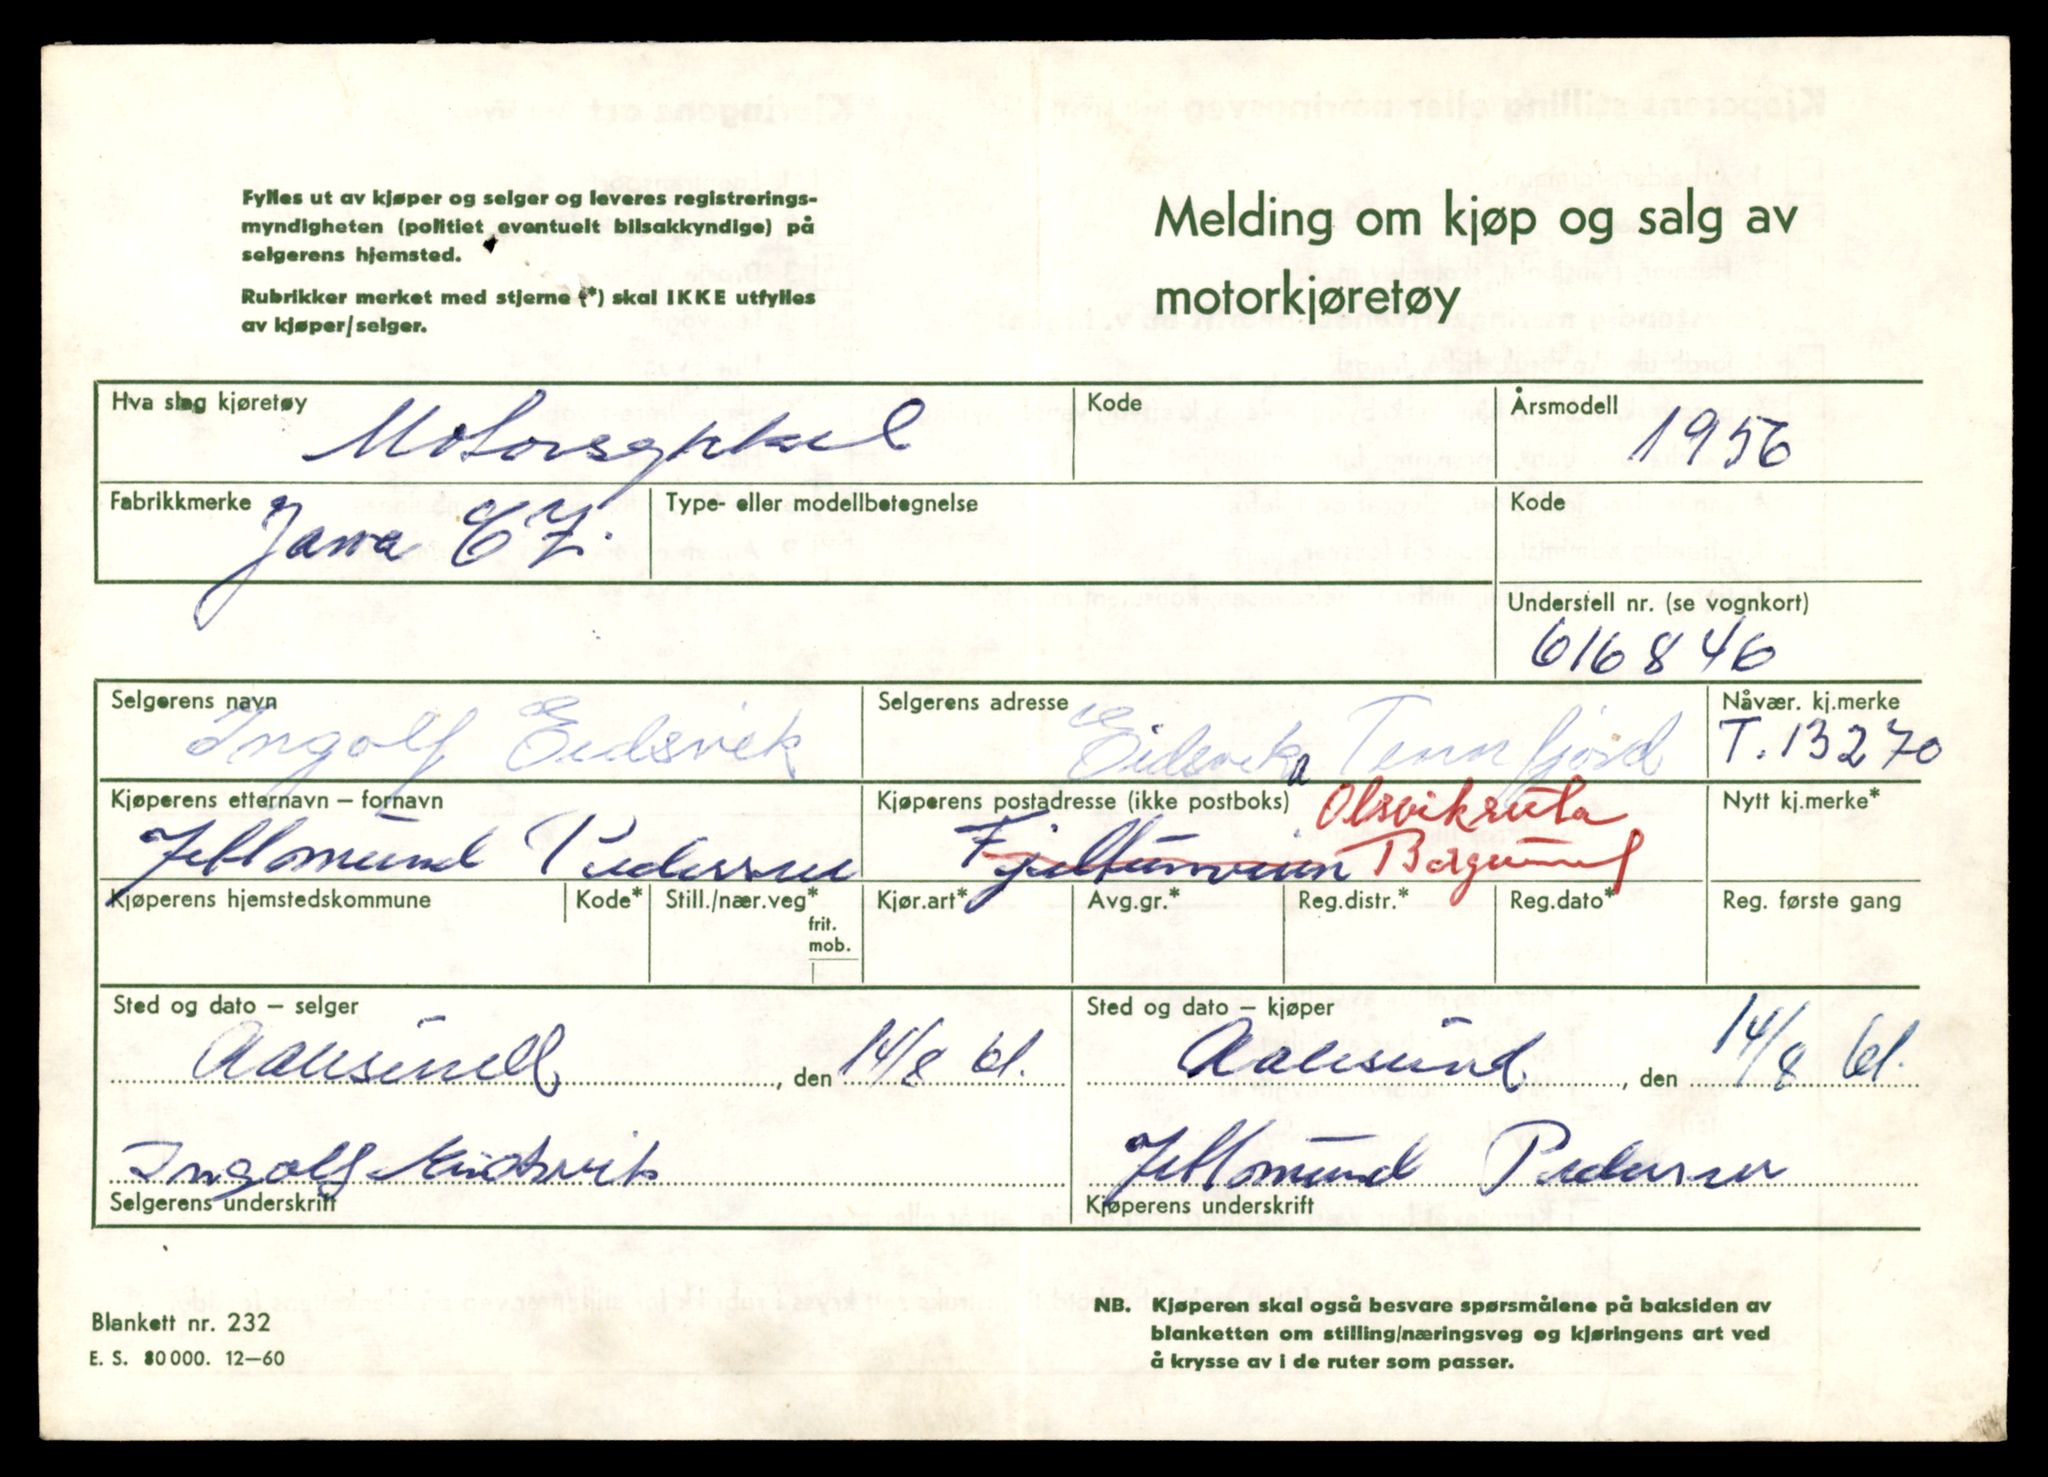 Fylles ut av kjøper og selger og leveres registrerings-
myndigheten (politiet eventuelt bilsakkyndige) på
selgerens hjemsted.
Rubrikker merket med stjerne (*) skal IKKE utfylles
av kjøper/selger.
Melding om kjøp og salg av
motorkjøretøy
Hva slag kjøretøy
Motorsykkel
Kode
Årsmodell
1956
Fabrikkmerke
Jawa CZ.
Type- eller modellbetegnelse
Kode
Understell nr. (se vognkort)
616846
Selgerens navn
Ingolf Eidsvik
Selgerens adresse
Eidsvik Tennfjord
Nåvær. kj.merke
T. 13270
Kjøperens etternavn – fornavn
Jettmund Pedersen
Kjøperens postadresse (ikke postboks)
Olsvikruta
Borgund
Nytt kj.merke*
Kjøperens hjemstedskommune
Kode*
Still./nær.veg*
frit.
mob.
Kjør.art*
Avg.gr.*
Reg.distr.*
Reg.dato*
Reg. første gang
Sted og dato – selger
Aalesund, den 14/8 61.
Sted og dato – kjøper
Aalesund, den 14/8 61.
Ingolf Eidsvik
Selgerens underskrift
Jettmund Pedersen
Kjøperens underskrift
Blankett nr. 232
E. S. 80 000. 12–60
NB. Kjøperen skal også besvare spørsmålene på baksiden av
blanketten om stilling/næringsveg og kjøringens art ved
å krysse av i de ruter som passer.